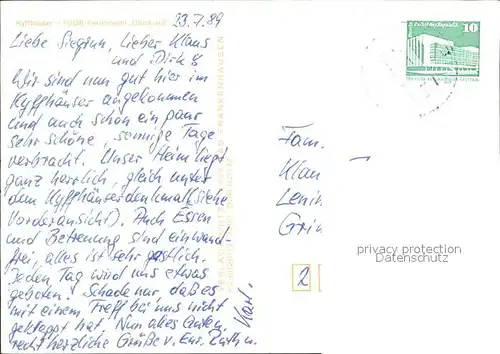 Kyffhäuser - FDGB-Ferienheim „Glück auf"
23.7.89
Liebe Sieglinn, Lieber Klaus
und Dirk!
Wir sind nun gut hier im
Kyffhäuser angekommen
und auch schön ein paar
sehr schöne, sonnige Tage
verbracht. Unser Heim liegt
ganz herrlich, gleich unter
dem Kyffhäuserdenkmal (siehe
Vorderansicht). Auch Essen
und Betreuung sind einwand-
frei, alles ist sehr gastlich.
Jeden Tag wird uns etwas
geboten! Schade nur, daß es
mit einem Treff bei uns nicht
geklappt hat. Nun alles Gute
recht herzliche Grüße v. Eur. Ruth u.
Karl.
10
Fam.
Klau
Lenin
Grim
privacy protection
Datenschutz
2